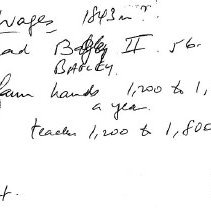 Wages 1843 in ?.
ad Bagby II 56.
BAGLEY.
farm hands 1,200 to 1,
a year.
teacher 1,200 to 1,800
t.